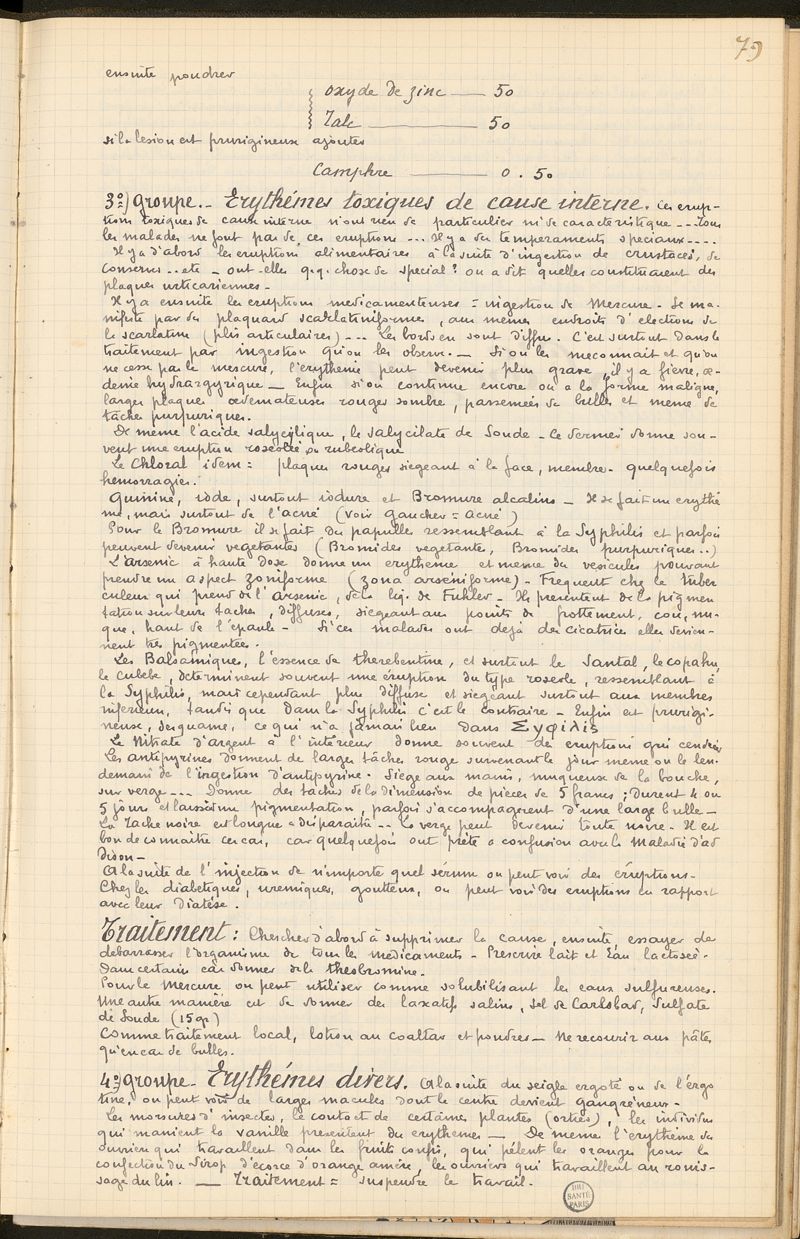 79
ensuite poudrer
oxyde de zinc —— 50
Talc —— 50
si la lesion est prurigineuse ajoutez
Camphre —— 0.50
3º) groupe.- Erythémes toxiques de cause interne. Ces erup-
tions toxiques de cause interne n'ont rien de particulier ni de caracteristique --- tous
les malades ne font pas de ces eruptions --- Il y a des temperaments speciaux ----
Il y a d'abord les eruptions alimentaires à la suite d'ingestion de crustacés, de
conserves .. etc - ont-elles q.q. chose de special? on a dit quelles constituaient des
plaques urticariennes -
Il y a ensuite les eruptions medicamenteuses = ingestion de Mercure - Se ma-
nifeste par des plaquard scarlatiniforme, aux memes endroits d'election de
la scarlatine (plis articulaires) --- Les bords en sont diffus. C'est surtout dans le
traitement par ingestion qu'on les observe. - Si on les meconnait et qu'on
ne cesse pas le mercure, l'erytheme peut devenir plus grave, il y a fievre, œ-
deme hydrargyrique - Enfin si on continue encore on a la forme maligne,
larges plaques œdemateuses rouges sombre, parsemées de bulles et meme de
tâches purpuriques.
De même l'acide salycylique, le salycilate de Soude - Ce dernier donne sou-
vent une eruption roseolée ou rubeolique
Le Chloral idem = plaques rouges siegeant à la face, membres - quelquefois
hemorragies.
Quinine, iode, surtout iodure et Bromure alcalins - Il se fait un erythé
me, mais surtout de l'acné (voir Gaucher = acné)
Pour le Bromure il se fait des papules ressemblant à la Syphilis et parfois
peuvent devenir vegetantes (Bromides vegetantes, Bromides purpuriques..)
L'arsenic à haute dose donne un erytheme et meme des vesicules pouvant
prendre un aspect zoniforme (zona arséniforme) - Frequent chez les tuber
culeux qui prend de l'arsenic, de la liq. de Fuhler - Ils presentent de la pigmen
tation sur leurs taches, diffuses, siegeant aux points de frottement, cou, nu-
que, haut de l'epaule - Si ces malades ont dejà des cicatrices elles devien-
nent très pigmentées.
Les Balsamiques, l'essence de therebentine, et surtout le Santal, le copahu,
le cubebe, determinent souvent une éruption du type roseole, ressemblant à
la Syphilis, mais cependant plus diffuse et siegeant surtout aux membres
inferieurs, tandis que dans la Syphilis c'est le contraire - Enfin est prurigi-
neuse, desquame, ce qui n'a jamais lieu dans Σyφιλιs
Le Nitrate d'argent à l'interieur donne souvent des eruptions gris cendrés
Les antipyrines donnent de larges tâches rouge survenant le jour meme ou le len-
demain de l'ingestion d'antipyrine. Siège aux mains, muqueuse de la bouche,
sur verge --- Donne des taches de la dimension de pieces de 5 francs; Durent 4 ou
5 jours et laissent une pigmentation, parfois s'accompagnent d'une large bulle -
La tache noire est longue a disparaitre -- La verge peut devenir toute noire - Il est
bon de connaitre ces cas, car quelquefois ont prété a confusion avec la Maladie d'ad
dison -
A la suite de l'injection de n'importe quel sérum on peut voir des éruptions -
Chez les diabetiques, uremiques, goutteux, on peut voir des eruptions en rapport
avec leur Diatése.
Traitement: Chercher d'abord à supprimer la cause, ensuite essayer de
debarrasser l'organisme de tous les medicaments - Prescrire lait et Eau lactosée -
Dans certains cas donner de la theobromine.
Pour le Mercure on peut utiliser comme solubilisant les eaux sulfureuses.
Une autre maniére est de donner des laxatifs salins, Sel de Carlsbad, Sulfate
de Soude (15 gr)
Comme traitement local, lotion au coaltar et poudres - Ne recourir aux pâtes
qu'en cas de bulles.
4º) groupe - Erythémes divers. A la suite du seigle ergoté ou de l'ergo
tine, on peut voir de larges macules dont le centre devient gangréneux -
Les morsures d'insectes, le contact de certaines plantes (orties), les individus
qui manient la vanille presentent des erythemes - De meme l'erythème des
ouvriers qui travaillent dans les fruits confis, qui pélent les oranges pour la
confection du Sirop d'écorce d'orange amère, les ouvriers qui travaillent au rouis-
sage du lin. — Traitement = suspendre le travail.
BIU
SANTÉ
PARIS